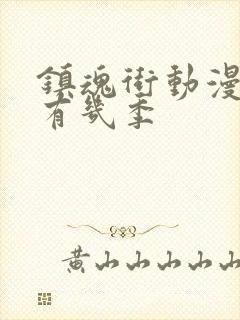 鎮魂街動漫
有幾季
黃山山山山